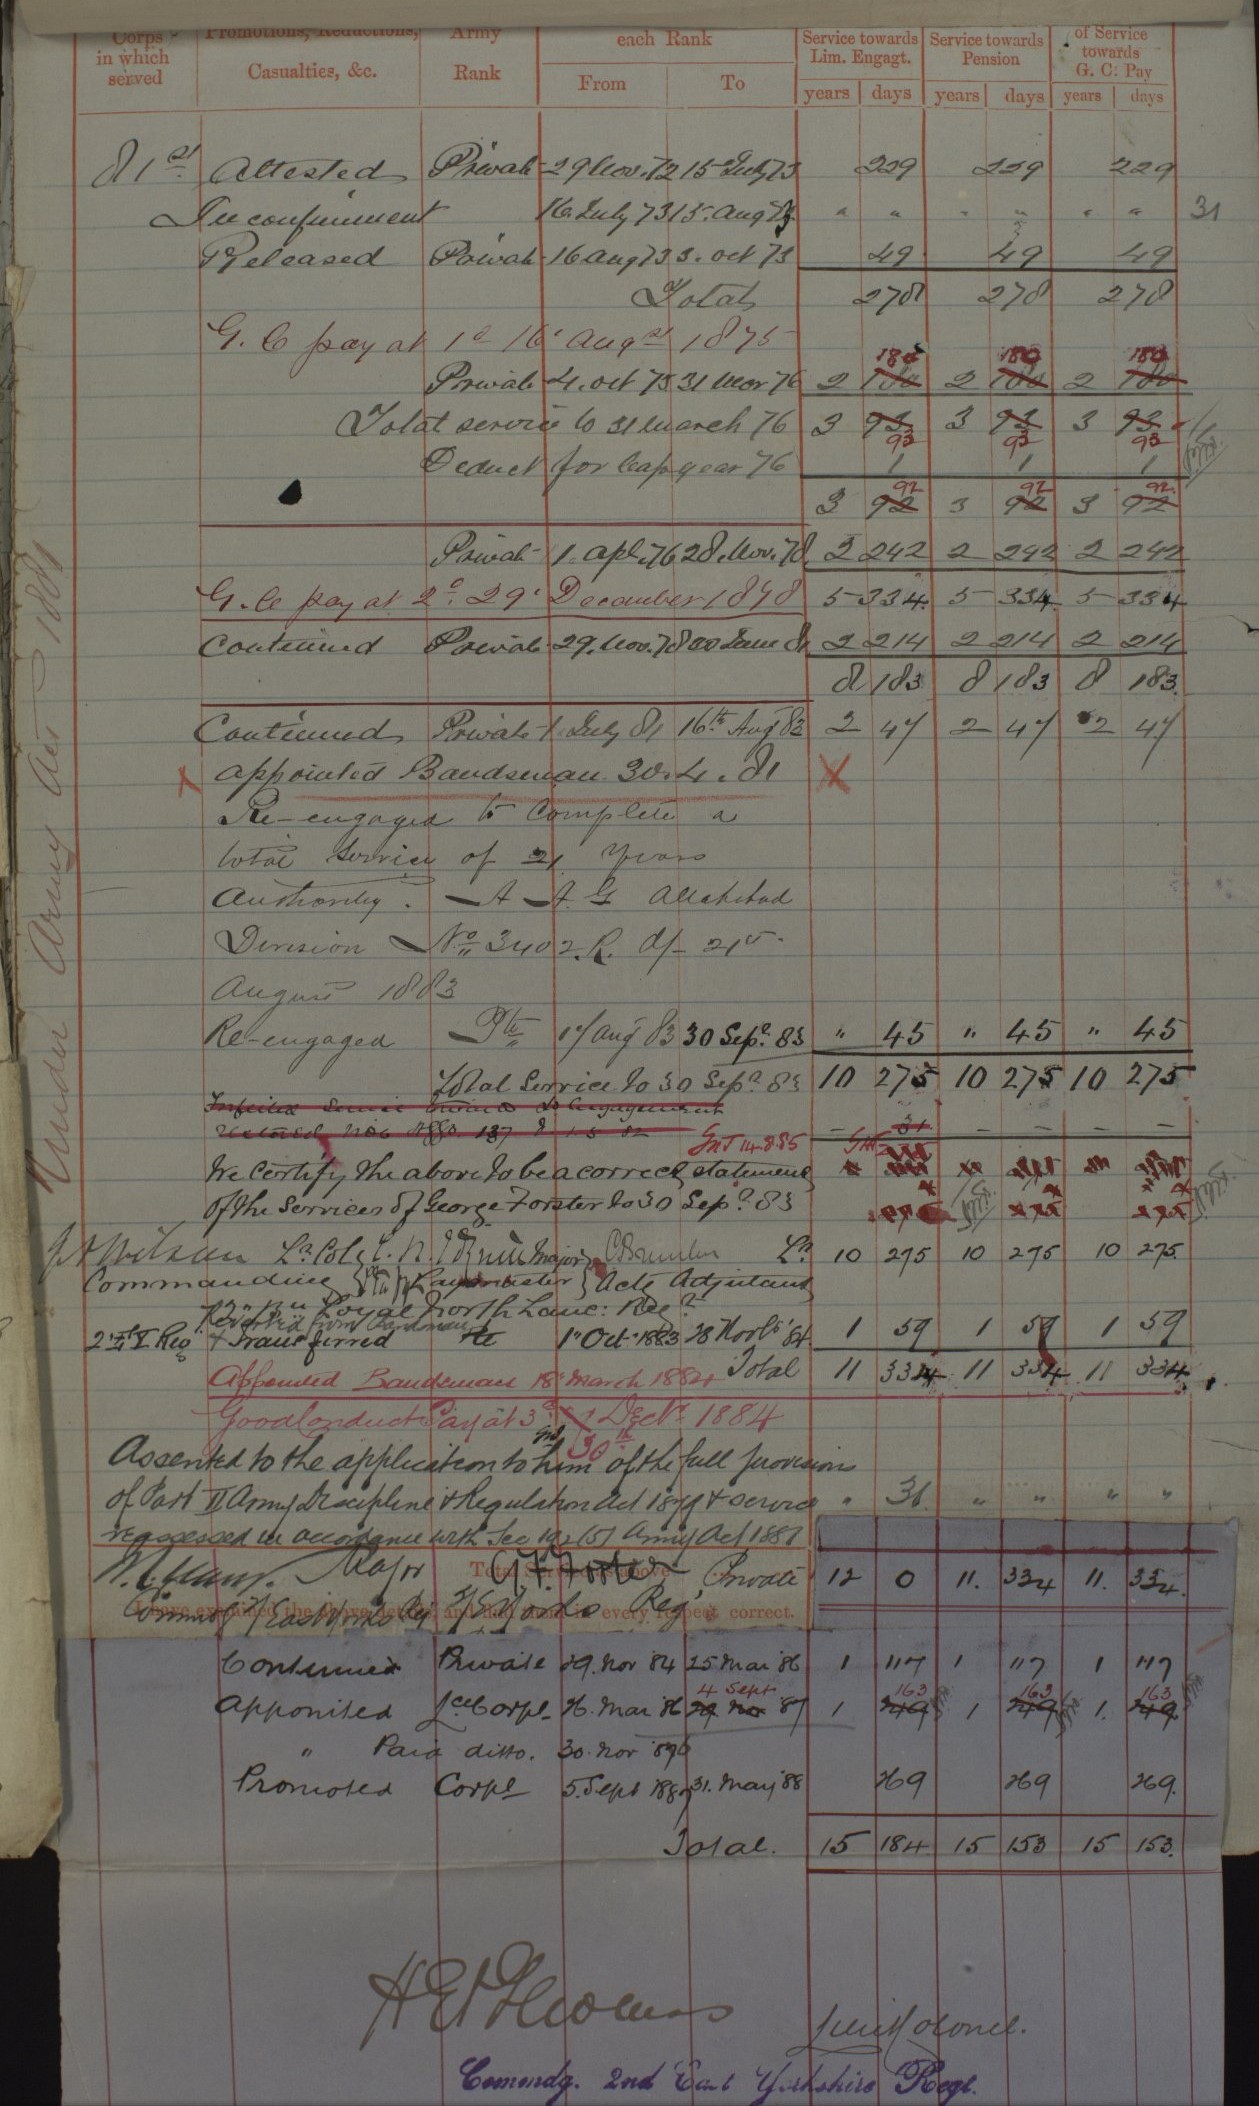 Corps Promotions, Reductions, Army each Rank Service towards Service towards of Service
in which Casualties, &c. Rank From To Lim. Engagt. Pension towards
served G. C. Pay
years days years days years days
81st Attested Private 29 Nov. 72 15 July 73 229 229 229
In confinement 16 July 73 15. Aug 73 " " " " " " 31
Released Private 16 Aug 73 3. Oct 73 49 49 49
Total 278 278 278
G. C pay at 1d 16' Augst 1875
180 180 180
Private 4. Oct 73 31 Mar 76 2 180 2 180 2 180
Total service to 31 March 76 3 93 3 93 3 93
93 93 93
Deduct for leap year 76 1 1 1
92 92 92
3 92 3 92 3 92
Private 1. Apl. 76 28. Nov. 78 2 242 2 242 2 242
G. C pay at 2d. 29' December 1878 5 334 5 334 5 334
Continued Private 29. Nov. 78 30 June 81 2 214 2 214 2 214
8 183 8 183 8 183
Continued Private 1 July 81 16th Aug 83 2 47 2 47 2 47
x Appointed Bandsman 30.4.81 X
Re-engaged to Complete a
total service of 21 Years
Authority. A A G Allahabad
Division No 3402.R. d/- 21st
August 1883
Re-engaged Pte 17 Aug 83 30 Sepr. 83 " 45 " 45 " 45
Total Service to 30 Sepr 83 10 275 10 275 10 275
Forfeited Service towards engagement
Restored 137 — 31 — — — —
GMJ 14.8.85
We certify the above to be a correct statement
of the Services of George Forster to 30 Sepr 83
Wilson Lt. Col Major Lt 10 275 10 275 10 275
Commanding Paymaster Actg Adjutant
Loyal North Lanc: Regt
Reverted from Bandsman
2nd E.Y. Reg & Transferred Pte 1st Oct. 1883 28 Novr '84 1 59 1 59 1 59
Appointed Bandsman 18' March 1884 Total 11 334 11 334 11 334
Good Conduct Pay at 3d Decr. 1884
30th
Assented to the application to him of the full provisions
of Part II Army Discipline & Regulation Act 1879 & service " 31 " " " "
reassessed in accordance with Sec 192 (5) Army Act 1881
Major G. Forster Private 12 0 11. 334 11. 334.
Commdg 2/East Yorks Rg 2/E Yorks Reg' every respect correct.
Continued Private 29. Nov '84 25 Mar '86 1 117 1 117 1 117
4 Sept 163 163 163
Appointed Lce Corpl 26. Mar '86 29 Nov '87 1 249 1 249 1. 249
" Paid ditto. 30. Nov '86
Promoted Corpl 5. Sept 1887 31. May '88 269 269 269.
Total. 15 184 15 153 15 153.
Under Army Act 1881
H E Thomas
Lieut Colonel.
Commdg. 2nd East Yorkshire Regt.